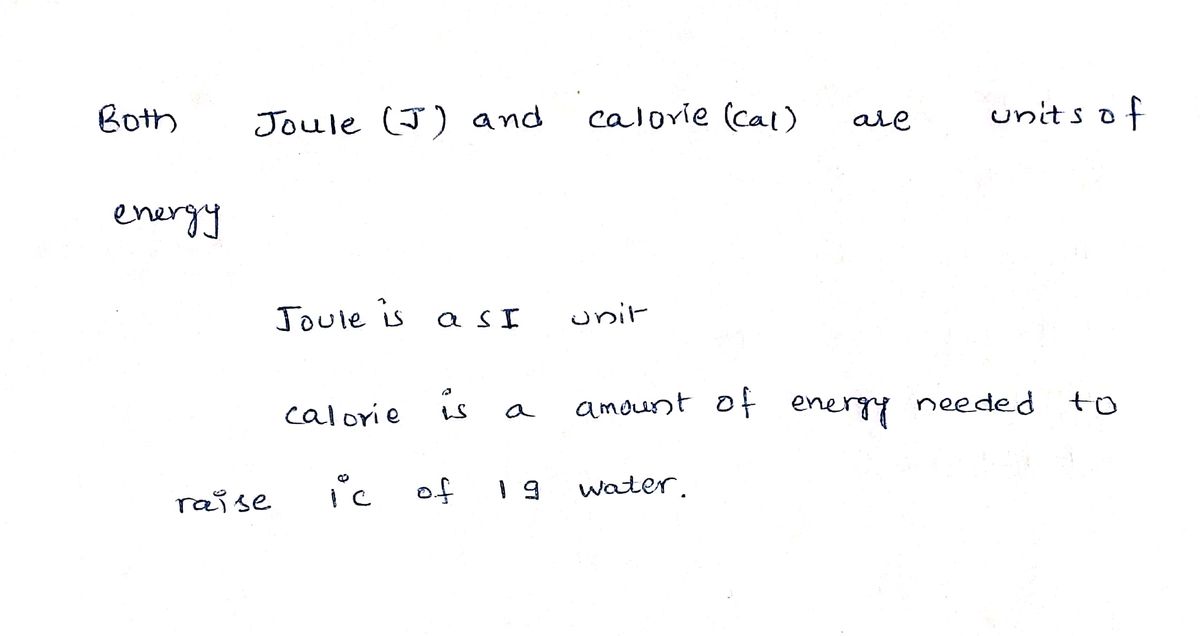 Both Joule (J) and calorie (cal) are units of
energy
Joule is a SI unit
calorie is a amount of energy needed to
raise 1°c of 1g water.